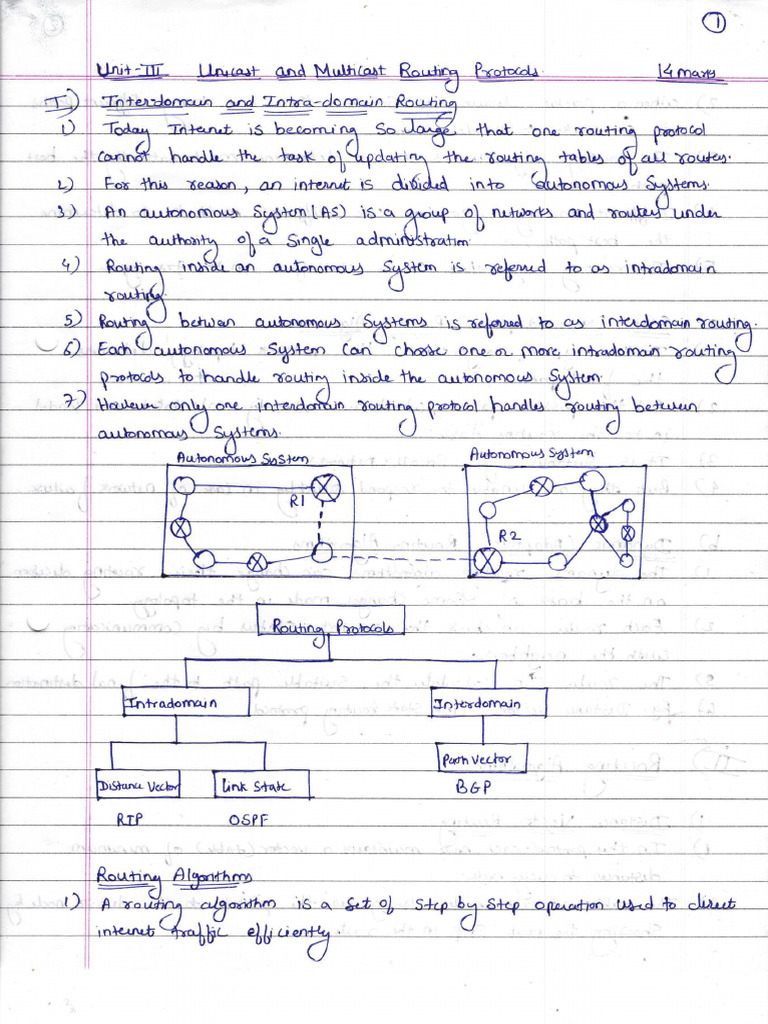 1
Unit-III Unicast and Multicast Routing Protocols. 14 marks
I) Interdomain and Intra-domain Routing
1) Today Internet is becoming so large that one routing protocol
cannot handle the task of updating the routing tables of all routes.
2) For this reason, an internet is divided into autonomous Systems.
3) An autonomous System (AS) is a group of networks and routers under
the authority of a Single administration
4) Routing inside an autonomous System is referred to as intradomain
routing.
5) Routing between autonomous Systems is referred to as interdomain routing.
6) Each autonomous System can choose one or more intradomain routing
protocols to handle routing inside the autonomous System
7) However only one interdomain routing protocol handles routing between
autonomous Systems.
Autonomous System Autonomous System
R1
R2
Routing Protocols
Intradomain Interdomain
Distance Vector Link State Path Vector
RIP OSPF BGP
Routing Algorithms
1) A routing algorithm is a set of Step by Step operation used to direct
internet traffic efficiently.